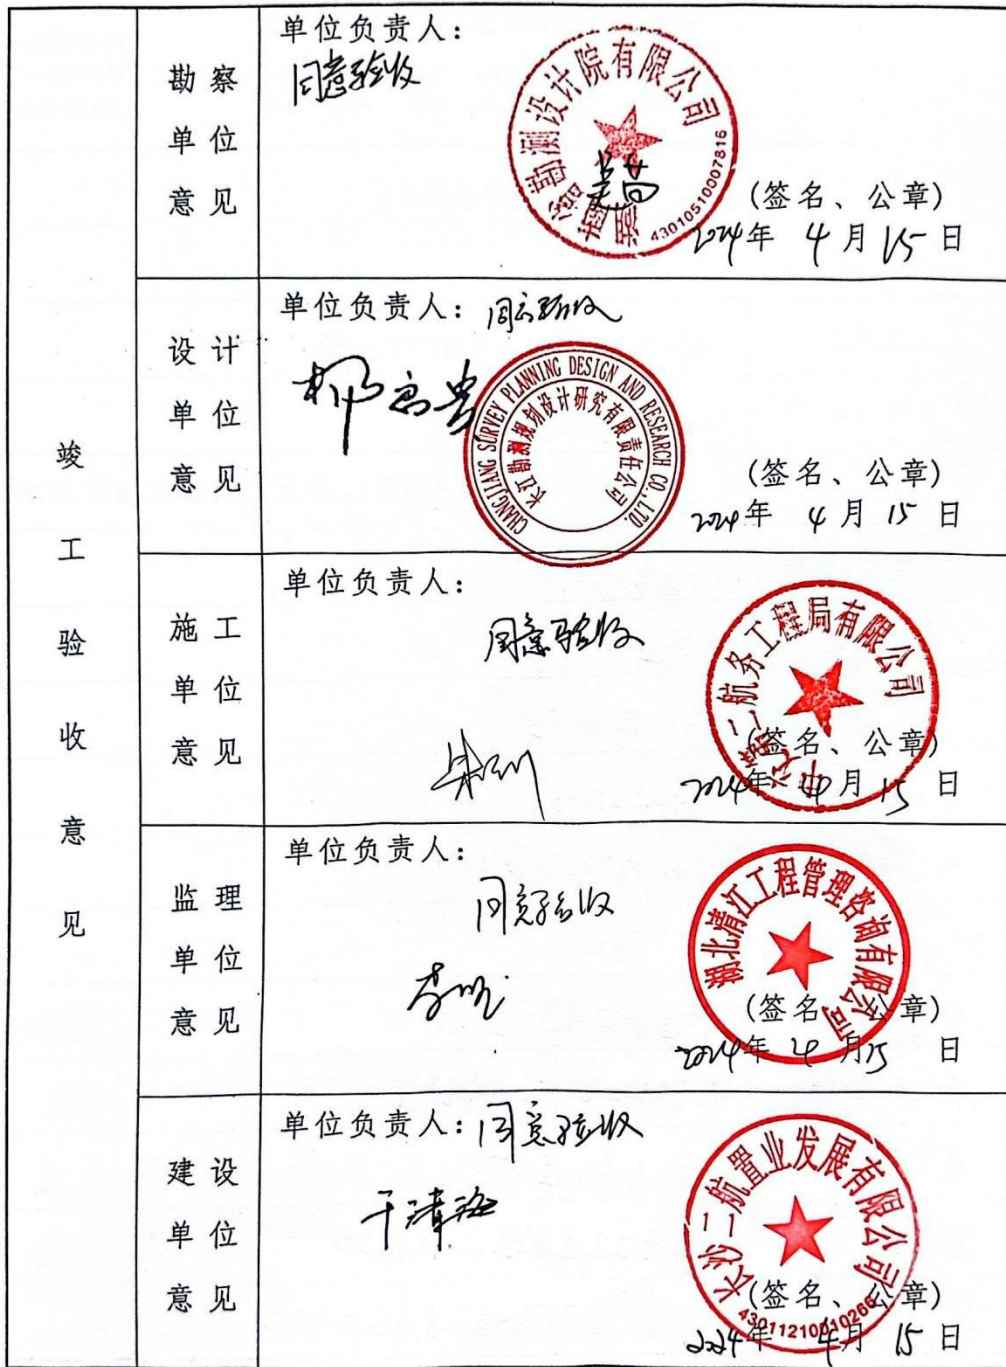 竣工验收意见
勘察单位意见
单位负责人:
同意验收
湖南省勘测设计院有限公司
43010510007816
(签名、公章)
2024年 4月 15日
设计单位意见
单位负责人: 同意验收
CHANGJIANG SURVEY PLANNING DESIGN AND RESEARCH CO., LTD.
长江勘测规划设计研究有限责任公司
(签名、公章)
2024年 4月 15日
施工单位意见
单位负责人:
同意验收
中交第二航务工程局有限公司
(签名、公章)
2024年 4月 15日
监理单位意见
单位负责人:
同意验收
湖北清江工程管理咨询有限公司
(签名、公章)
2024年 4月 15日
建设单位意见
单位负责人: 同意验收
长沙二航置业发展有限公司
43011210010266
(签名、公章)
2024年 4月 15日